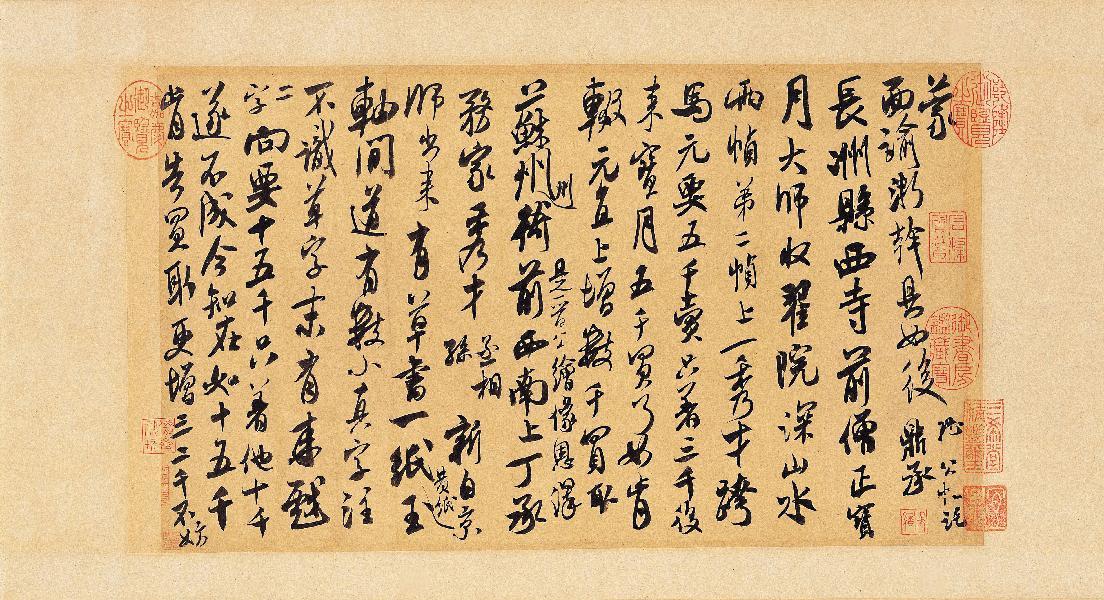 蒙
面諭浙幹具如後
鼎承
長洲縣西寺前僧正寶
月大師收翟院深山水
兩幀弟二幀上一秀才跨
馬元要五千賣只著三千後
來寶月五千買了如肯
輟元直上增數千買取
是晉公繪像恩澤
蘇州州衙前西南上丁承
務家秀才 至相孫 新自京
師出來有草書一紙 黃紙 王
軸間道有數小真字注
不識草字末有來戲
二字向要十五千只著他十千
遂不成今知在如十五千
肯告買取更增三二千不妨